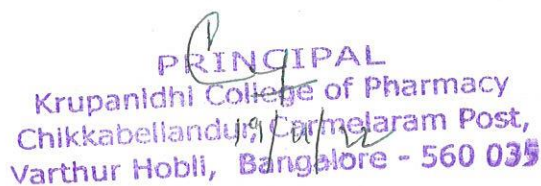 PRINCIPAL
Krupanidhi College of Pharmacy
Chikkabellandur, Carmelaram Post,
Varthur Hobli, Bangalore - 560 035